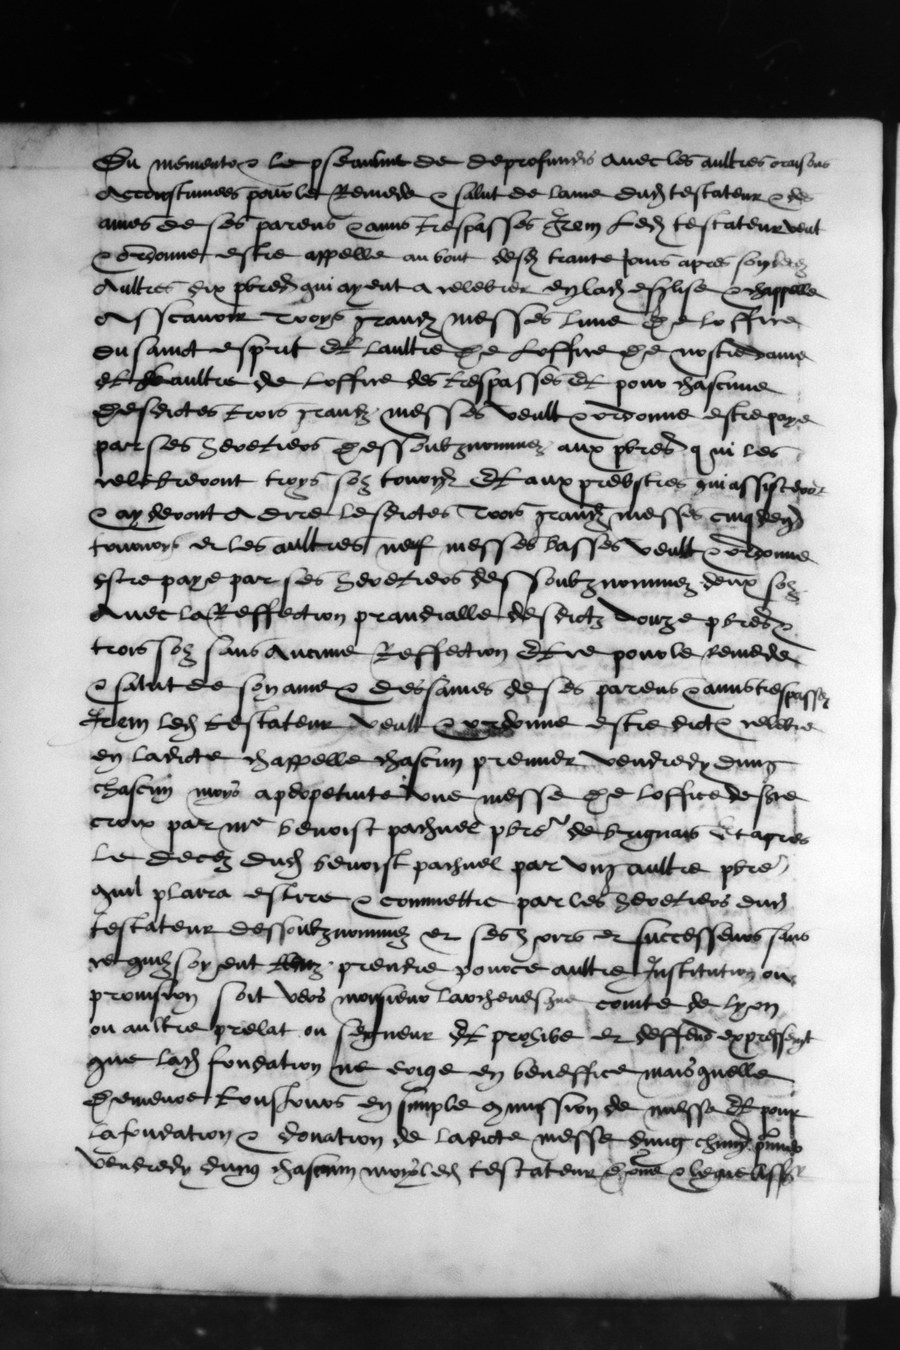 Du memento & le pseaulme de deprofundis avec les aultres oraisons
accoustumees pour le Remede & salut de lame dud testateur & des
ames de ses parens & amis trespasses Item led testateur veult
& ordonne estre appelle au bout desd trante jours apres
aultres dix pbres qui ayent a celebrer en lad esglise & chappelle
Asscavoir troys grandz messes lune de loffice
du sainct esprit Et laultre de loffice de nostre dame
Et laultre de loffice des trespasses Et pour chascune
desdictes trois grandz messes veult & ordonne estre paye
par ses heretiers dessoubz nommez aux pbres qui les
celebreront troys solz tournoys Et aux prebstres qui assisteront
& ayderont a dire lesdictes trois grandz messes cinq deniers
tournoys et les aultres neuf messes basses veult & ordonne
estre paye par ses heretiers dessoubz nommez deux solz
avec la Reffection prandialle desdictz douze pbres &
trois solz sans aucune Reffection Et ce pour le remede
& salut de son ame & des ames de ses parens & amis trespassez
Item led testateur veult & ordonne estre dicte & celebre
en ladicte chappelle chascun premier vendredy dung
chascun moys a perpetuite une messe de loffice de ste
croix par mre benoist pachuel pbre de brignais Et apres
le decez dud benoist pachuel par ung aultre pbre
quil plaira eslire & commettre par les heretiers dud
testateur dessoubz nommez et ses hoirs et successeurs sans
ce quilz soyent prendre pource aultre Institution ou
provision soit vers monsieur larchevesque comte de lyon
ou aultre prelat ou seigneur Et prohibe et deffend expressement
que lad fondation ne erige en beneffice mais quelle
demeure tousjours en simple commission de messe Et pour
la fondation & donation de ladicte messe dung chascun premier
vendredy dung chascun moys led testateur donne & legue